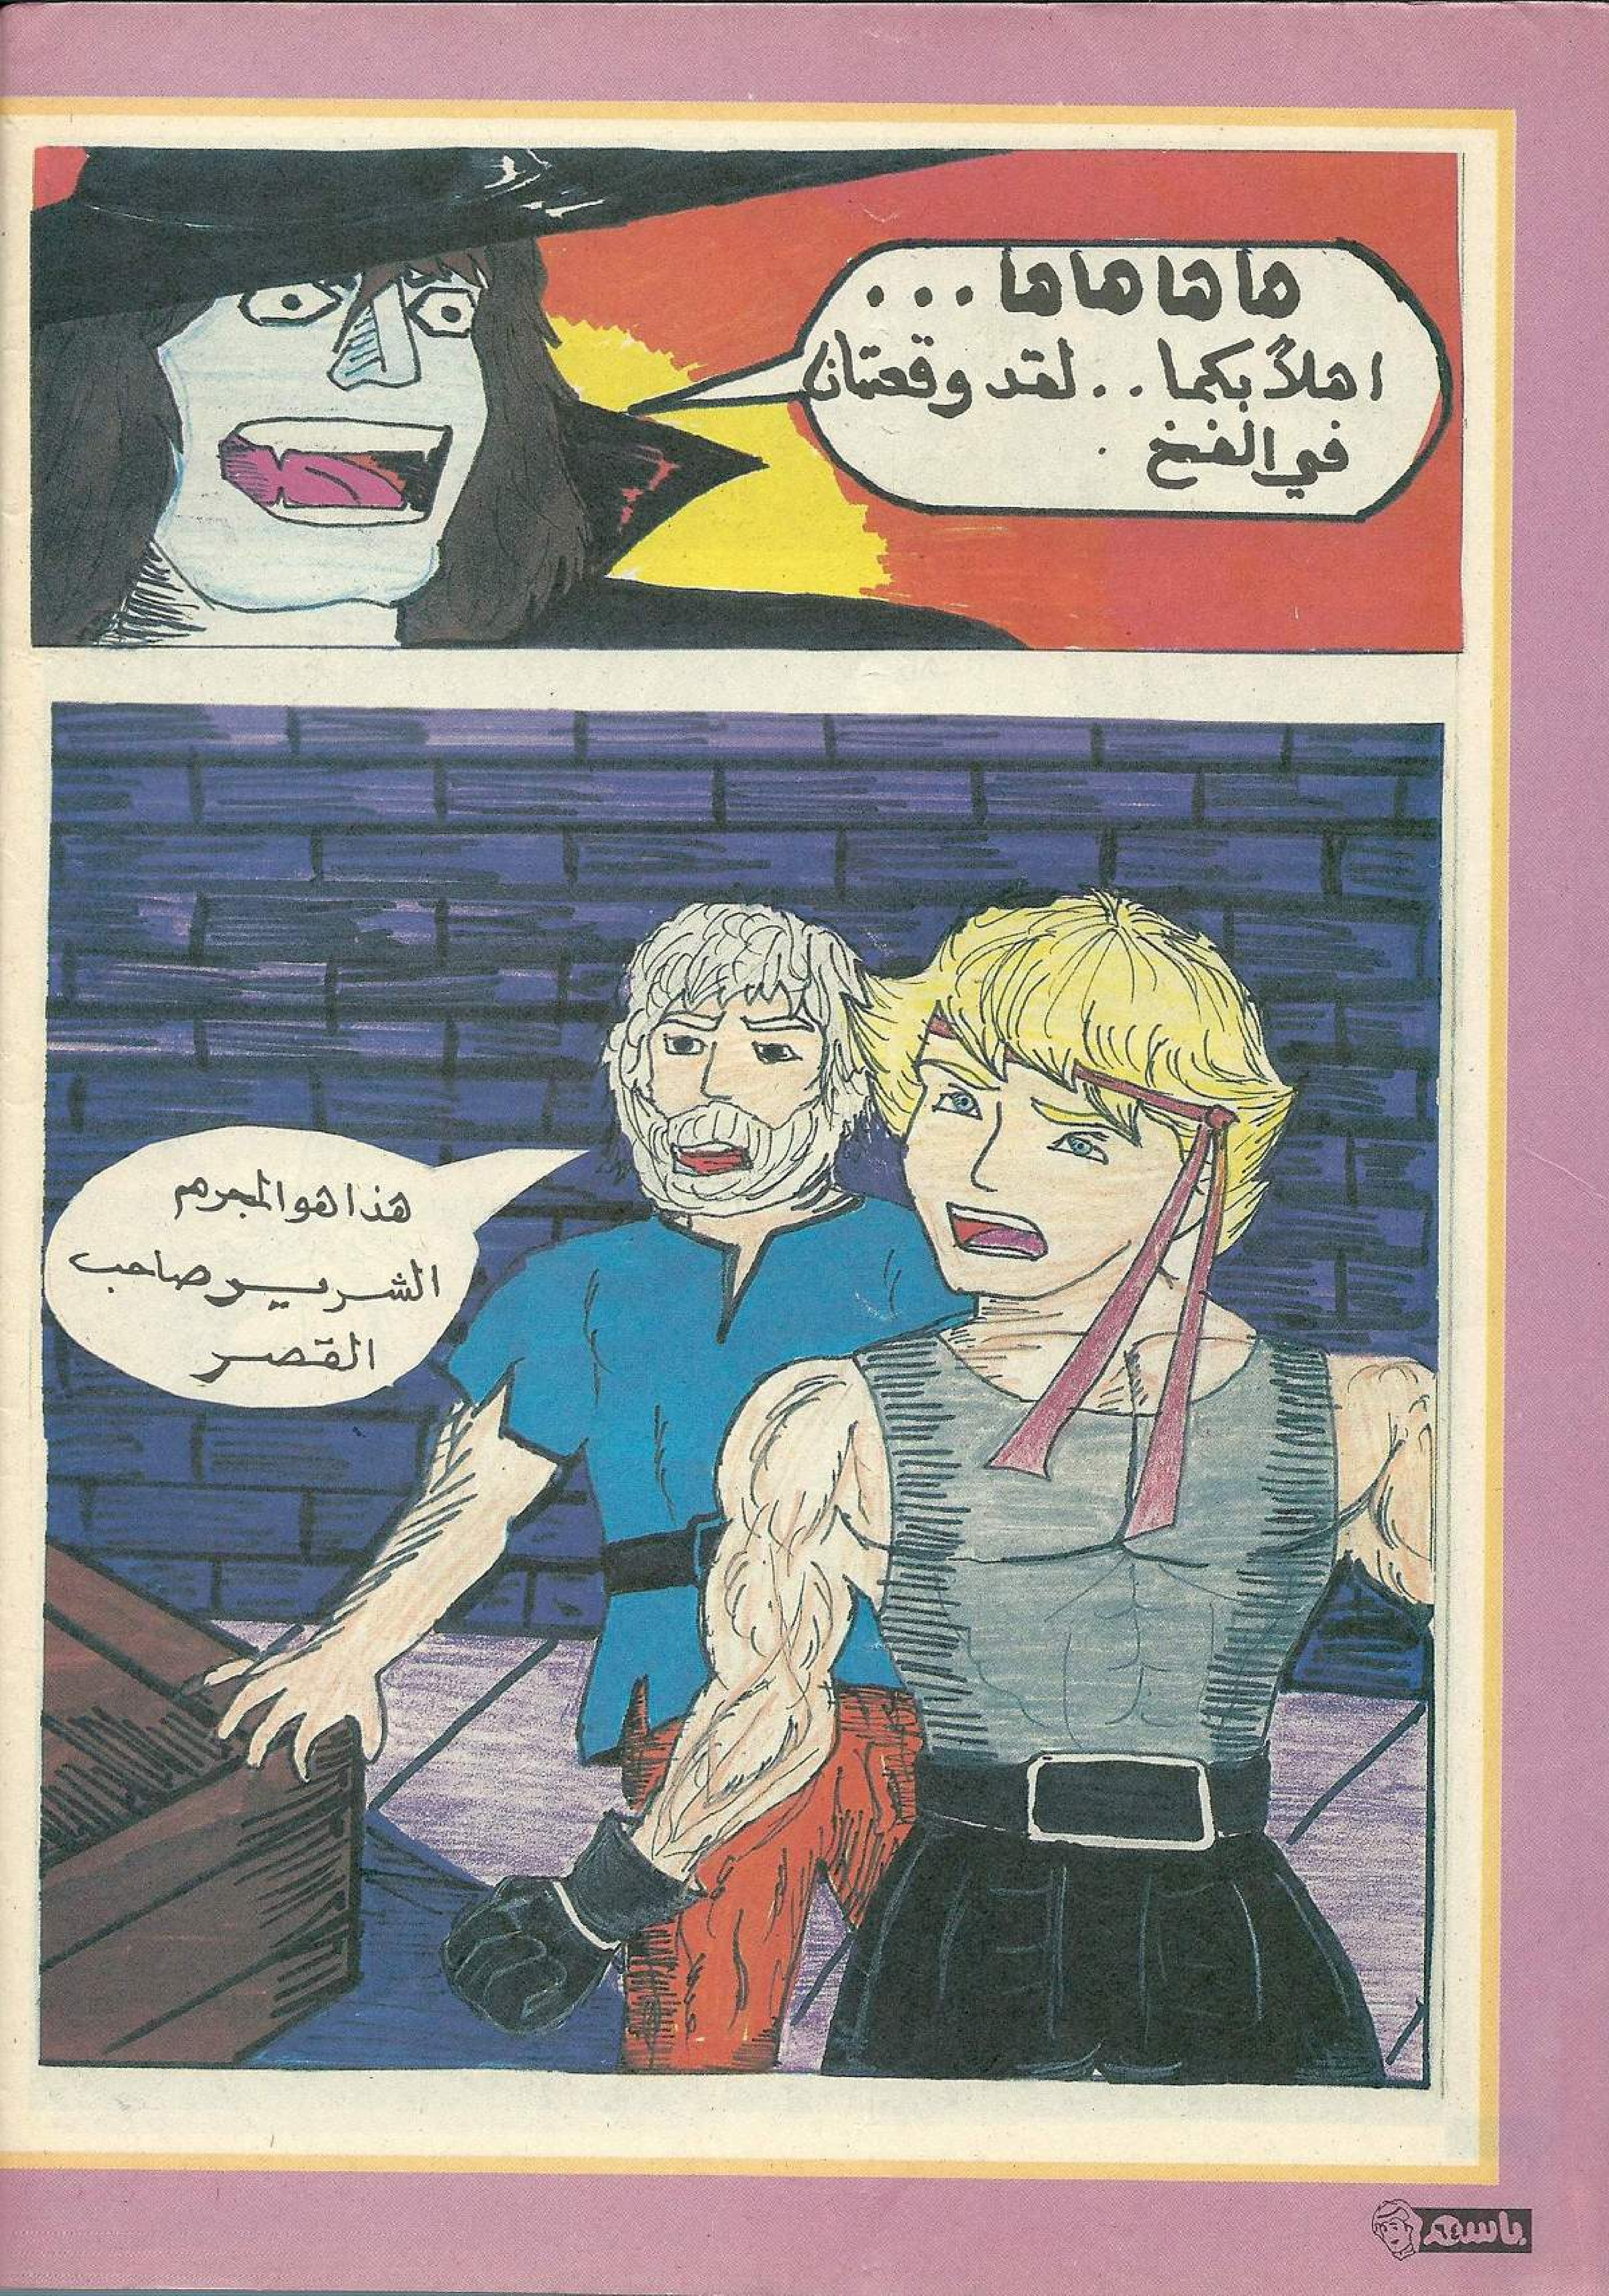 ها ها ها ها...
اهلاً بكما.. لقد وقعتان
في الفخ.
هذا هو المجرم
الشرير صاحب
القصر
باسم